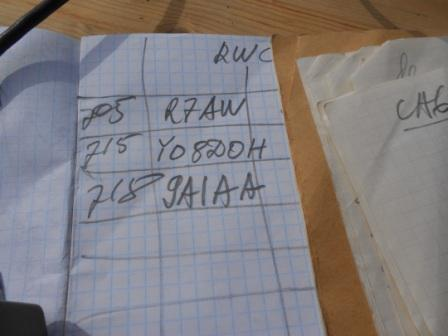 RWC
705 R7AW
715 YO8DOH
718 9A1AA
CAG